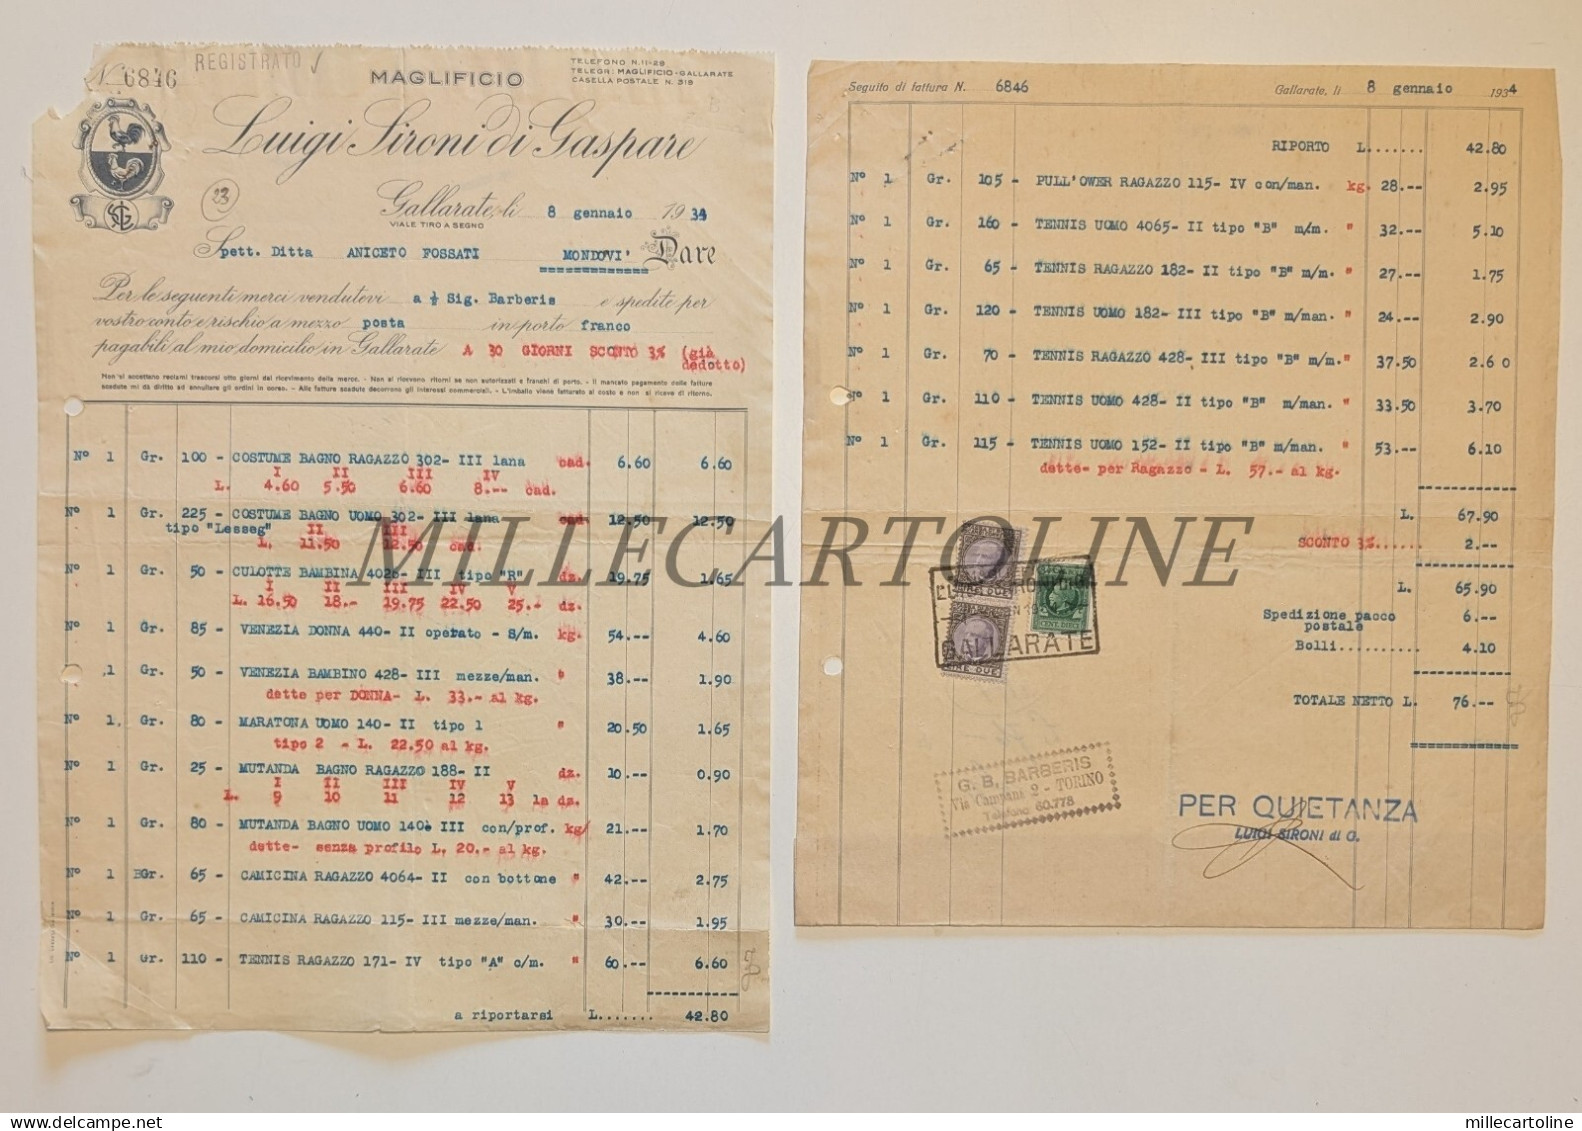 N. 6846
REGISTRATO
MAGLIFICIO
TELEFONO N. 11-28
TELEGR: MAGLIFICIO - GALLARATE
CASELLA POSTALE N. 318
Luigi Sironi di Gaspare
23
Gallarate, li 8 gennaio 1934
VIALE TIRO A SEGNO
Spett. Ditta ANICETO FOSSATI MONDOVI' Dare
Per le seguenti merci vendutevi a ½ Sig. Barberis e spedite per
vostro conto e rischio a mezzo posta in porto franco
pagabili al mio domicilio in Gallarate A 30 GIORNI SCONTO 3% (già
dedotto)
Non si accettano reclami trascorsi otto giorni dal ricevimento della merce. - Non si ricevono ritorni se non autorizzati e franchi di porto. - Il mancato pagamento delle fatture
scadute mi dà diritto ad annullare gli ordini in corso. - Alle fatture scadute decorrono gli interessi commerciali. - L'imballo viene fatturato al costo e non si riceve di ritorno.
N° 1 Gr. 100 - COSTUME BAGNO RAGAZZO 302- III lana cad. 6.60 6.60
I II III IV
L. 4.60 5.50 6.60 8.-- cad.
N° 1 Gr. 225 - COSTUME BAGNO UOMO 302- III lana cad. 12.50 12.50
tipo "Lesseg" II III
L. 11.50 12.50 cad.
N° 1 Gr. 50 - CULOTTE BAMBINA 4026- III tipo "R" dz. 19.75 1.65
I II III IV V
L. 16.50 18.- 19.75 22.50 25.- dz.
N° 1 Gr. 85 - VENEZIA DONNA 440- II operato - S/m. kg. 54.-- 4.60
1 Gr. 50 - VENEZIA BAMBINO 428- III mezze/man. " 38.-- 1.90
dette per DONNA- L. 33.- al kg.
N° 1. Gr. 80 - MARATONA UOMO 140- II tipo 1 " 20.50 1.65
tipo 2 - L. 22.50 al kg.
N° 1 Gr. 25 - MUTANDA BAGNO RAGAZZO 188- II dz. 10.-- 0.90
I II III IV V
L. 9 10 11 12 13 la dz.
N° 1 Gr. 80 - MUTANDA BAGNO UOMO 140 III con/prof. kg/ 21.-- 1.70
dette- senza profilo L. 20.- al kg.
N° 1 Gr. 65 - CAMICINA RAGAZZO 4064- II con bottone " 42.-- 2.75
N° 1 Gr. 65 - CAMICINA RAGAZZO 115- III mezze/man. " 30.-- 1.95
N° 1 Gr. 110 - TENNIS RAGAZZO 171- IV tipo "A" c/m. " 60.-- 6.60
a riportarsi L....... 42.80
Seguito di fattura N. 6846 Gallarate, li 8 gennaio 1934
RIPORTO L....... 42.80
N° 1 Gr. 105 - PULL'OWER RAGAZZO 115- IV con/man. kg. 28.-- 2.95
N° 1 Gr. 160 - TENNIS UOMO 4065- II tipo "B" m/m. " 32.-- 5.10
N° 1 Gr. 65 - TENNIS RAGAZZO 182- II tipo "B" m/m. " 27.-- 1.75
N° 1 Gr. 120 - TENNIS UOMO 182- III tipo "B" m/man. " 24.-- 2.90
N° 1 Gr. 70 - TENNIS RAGAZZO 428- III tipo "B" m/m. " 37.50 2.60
N° 1 Gr. 110 - TENNIS UOMO 428- II tipo "B" m/man. " 33.50 3.70
N° 1 Gr. 115 - TENNIS UOMO 152- II tipo "B" m/man. " 53.-- 6.10
dette- per Ragazzo - L. 57.- al kg.
L. 67.90
SCONTO 3%...... 2.--
L. 65.90
Spedizione pacco
postale 6.--
Bolli.......... 4.10
TOTALE NETTO L. 76.--
LIRE DUE
LIRE DUE
CENT. DIECI
GALLARATE
G. B. BARBERIS
Via Campana 2 - TORINO
Telefono 60.778
PER QUIETANZA
LUIGI SIRONI di G.
MILLECARTOLINE
delcampe.net
millecartoline